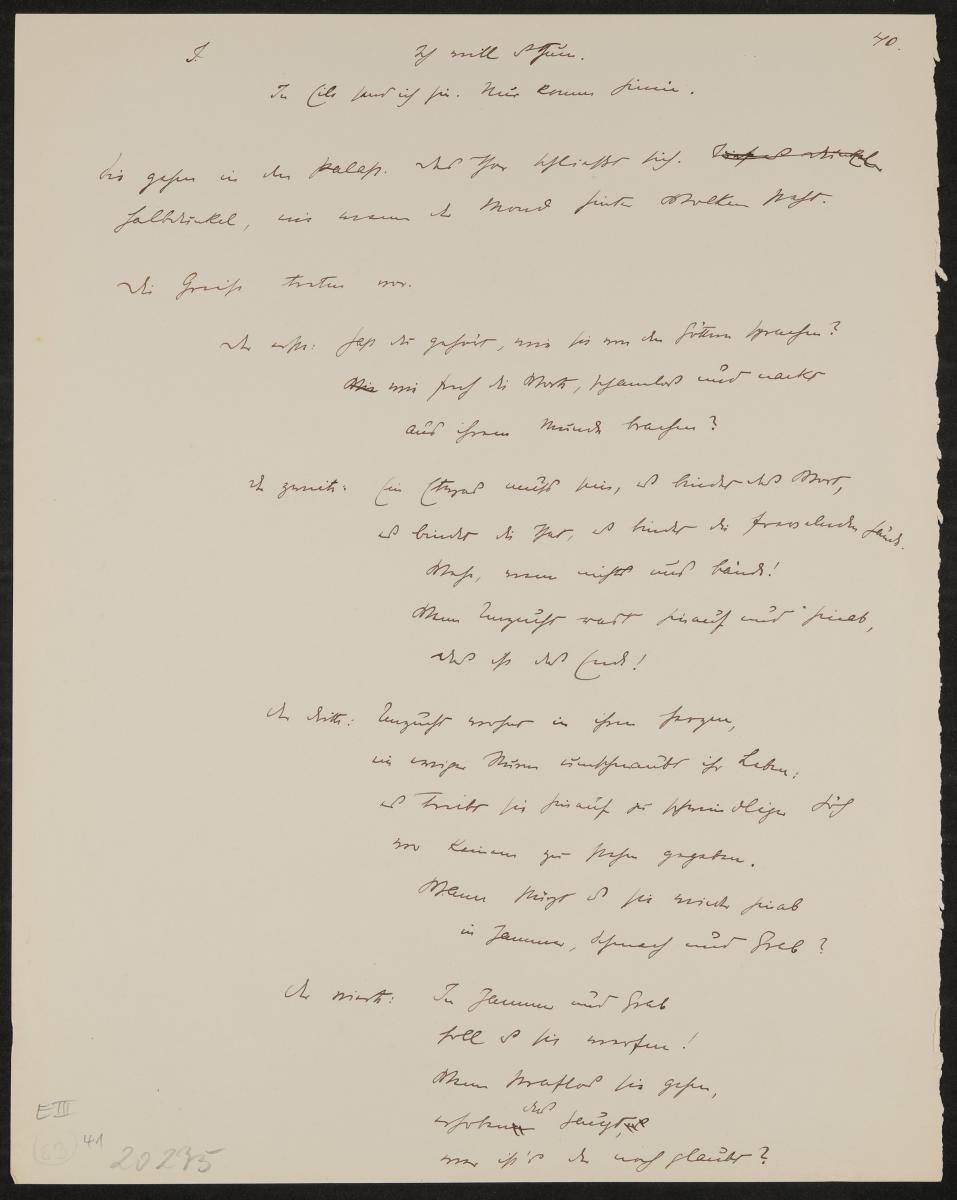 40.
J. Ich will es tun.
In Eile send ich hin. Nur komm hinein.
Sie gehen in den Palast. Das Tor schließt sich.
Halbdunkel, wie wenn der Mond hinter Wolken steht.
Die Greise treten vor.
Der erste: Hast du gehört, wie sie von den Göttern sprachen?
Wie wie frech die Worte, schamlos und nackt
aus ihrem Munde brachen?
Der zweite: Ein Etwas muß sein, es bindet das Wort,
es bindet die Tat, es bindet die frevelnden Hände.
Wehe, wenn nichts uns bände!
Wenn Unzucht rast hinauf und hinab,
das ist das Ende!
Der dritte: Unzucht wohnet in ihren Herzen,
ein ewiger Sturm umschnaubt ihr Leben:
es treibt sie hinauf zu schwindliger Höh
wo keinem zu stehen gegeben.
Wann stürzt es sie wieder hinab
in Jammer, Schmach und Grab?
Der vierte: In Jammer und Grab
soll es sie werfen!
Wenn straflos sie gehen,
erhoben das Haupt,
wer ist's der noch glaubt?
E III
(63) 41
20235